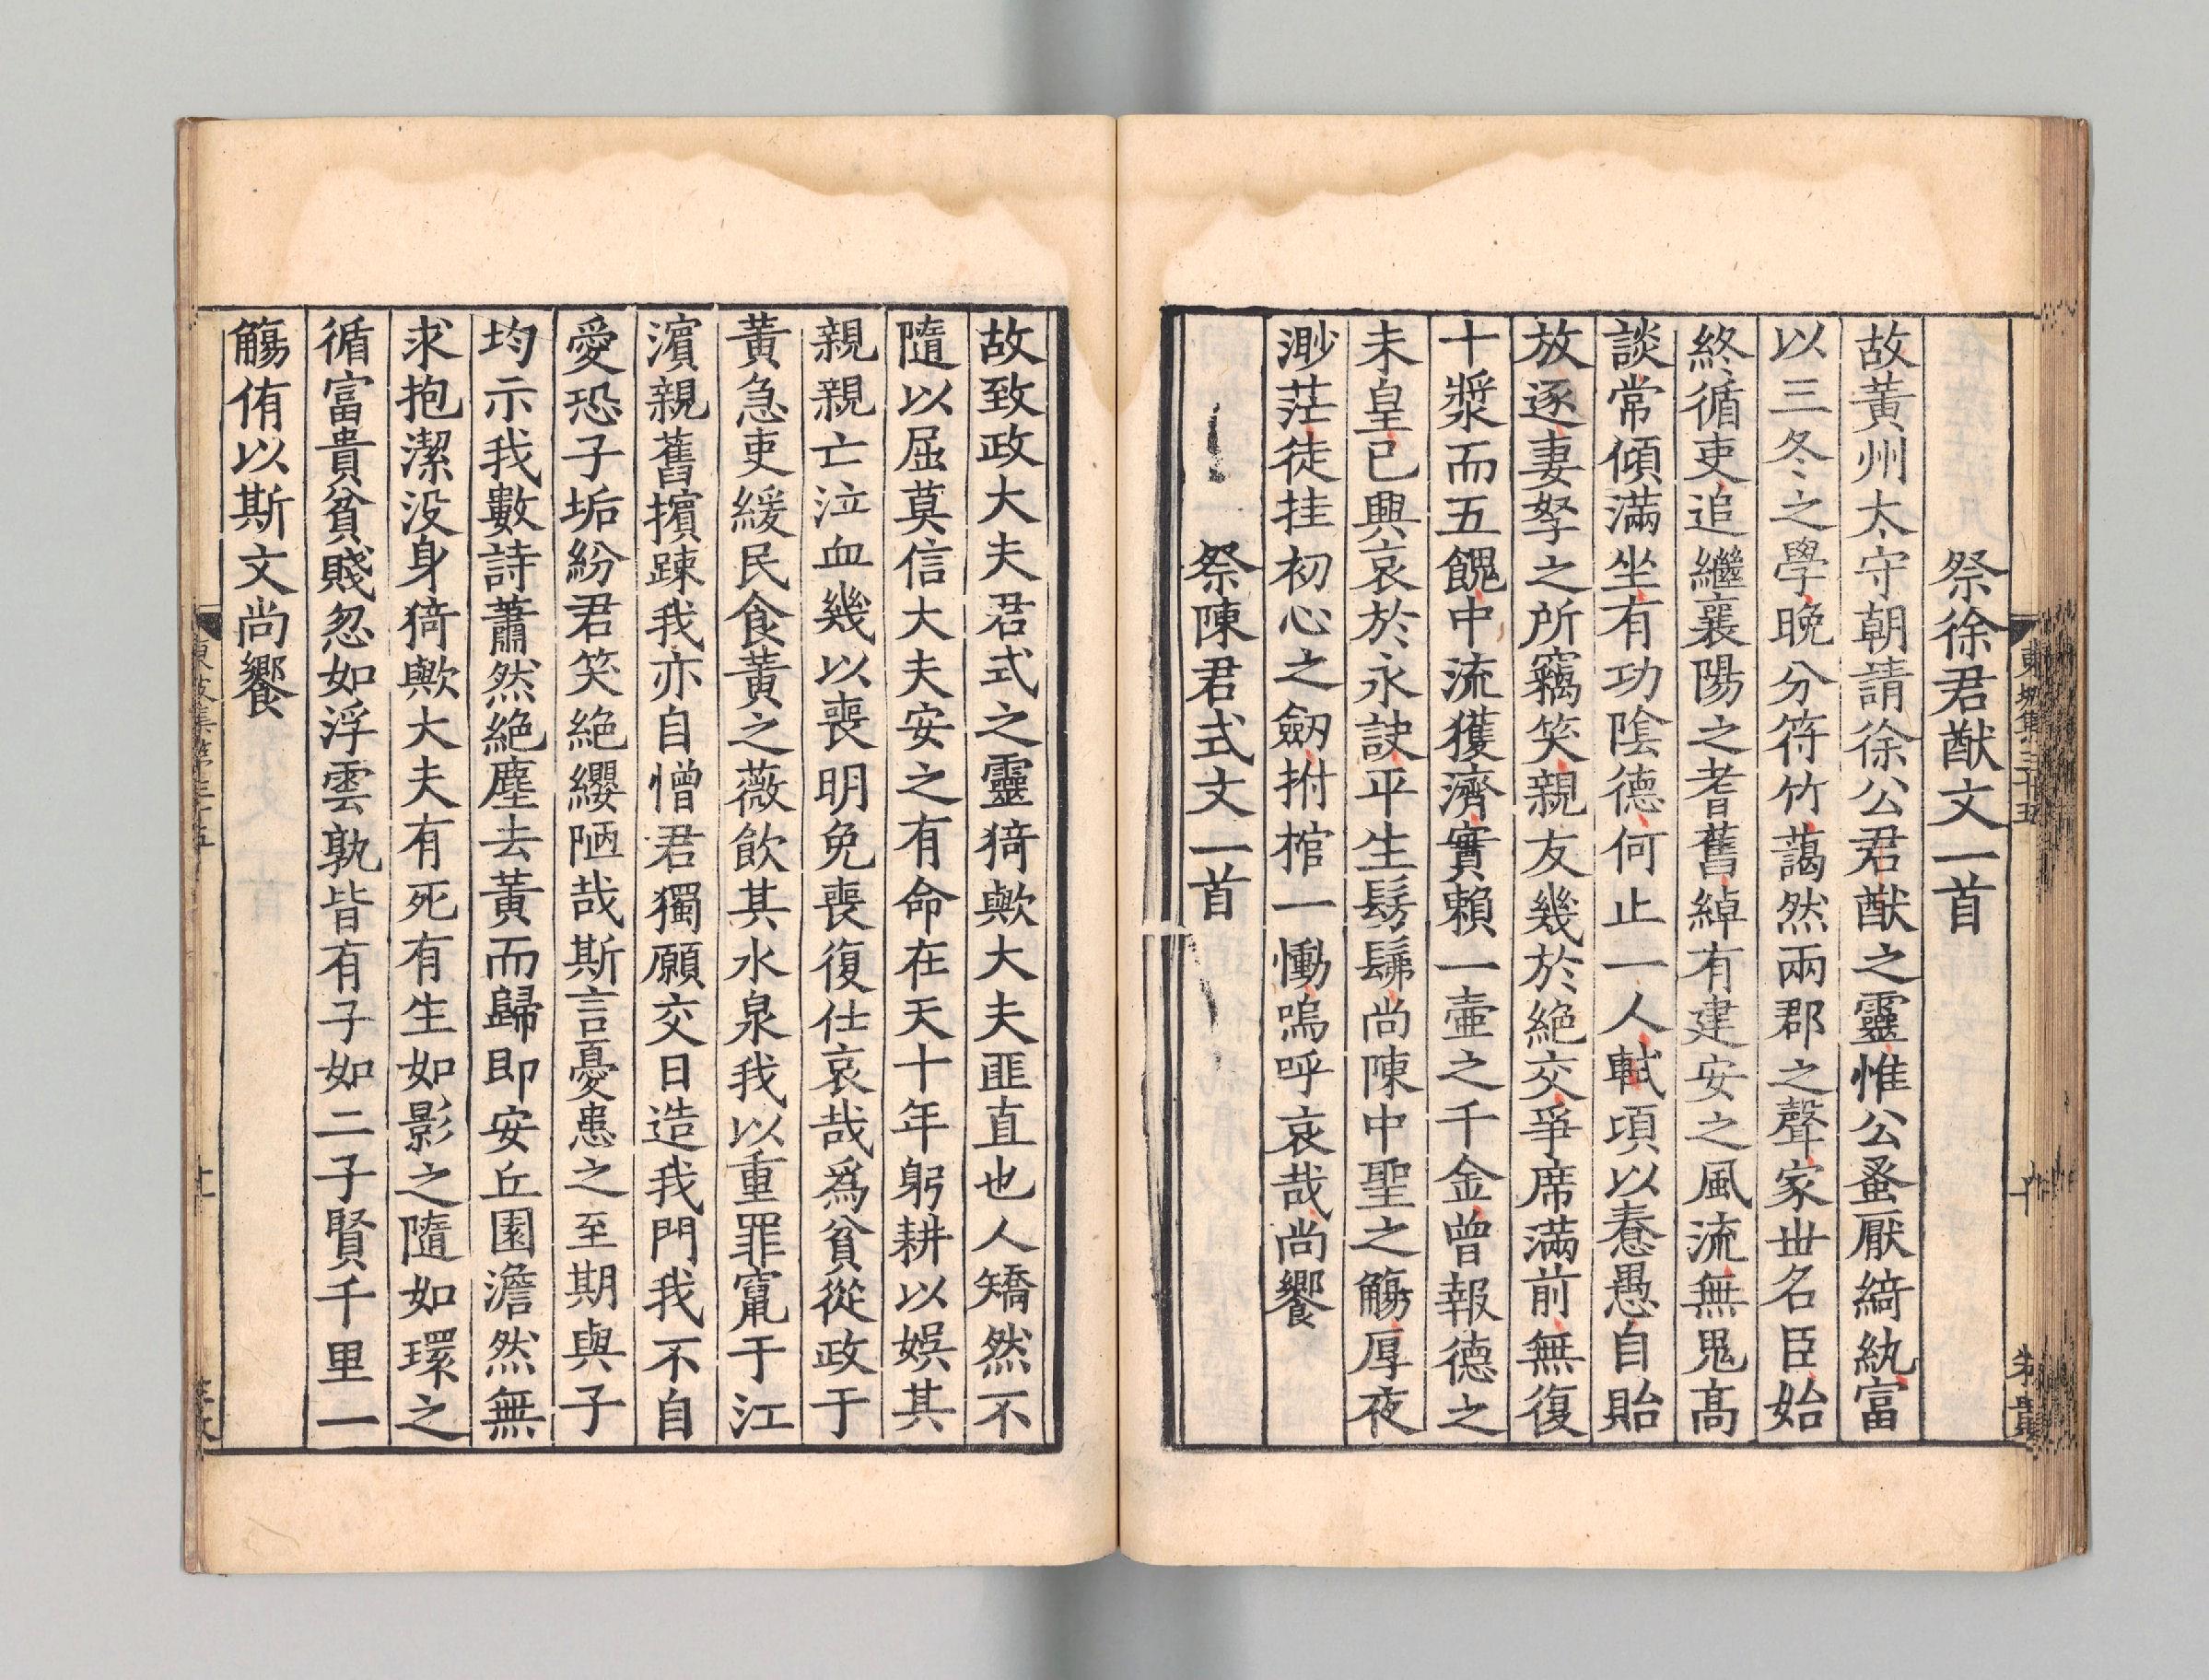 祭徐君猷文一首
故黃州太守朝請徐公君猷之靈惟公蚤厭綺紈富
以三冬之學晚分符竹藹然兩郡之聲家世名臣始
終循吏追繼襄陽之耆舊綽有建安之風流無鬼高
談常傾滿坐有功陰德何止一人軾頃以惷愚自貽
放逐妻孥之所竊笑親友幾於絶交爭席滿前無復
十漿而五餽中流獲濟實賴一壷之千金曾報德之
未皇已興哀於永訣平生髣髴尚陳中聖之觴厚夜
渺茫徒挂初心之劒拊棺一慟嗚呼哀哉尚饗
祭陳君式文一首
故致政大夫君式之靈猗歟大夫匪直也人矯然不
隨以屈莫信大夫安之有命在天十年躬耕以娯其
親親亡泣血幾以喪明免喪復仕哀哉爲貧從政于
黃急吏緩民食黃之薇飲其水泉我以重罪竄于江
濵親舊擯踈我亦自憎君獨願交日造我門我不自
愛恐子垢紛君笑絶纓陋哉斯言憂患之至期與子
均示我數詩蕭然絶塵去黃而歸即安丘園澹然無
求抱潔没身猗歟大夫有死有生如影之隨如環之
循富貴貧賤忽如浮雲孰皆有子如二子賢千里一
觴侑以斯文尚饗
東坡集第三十五